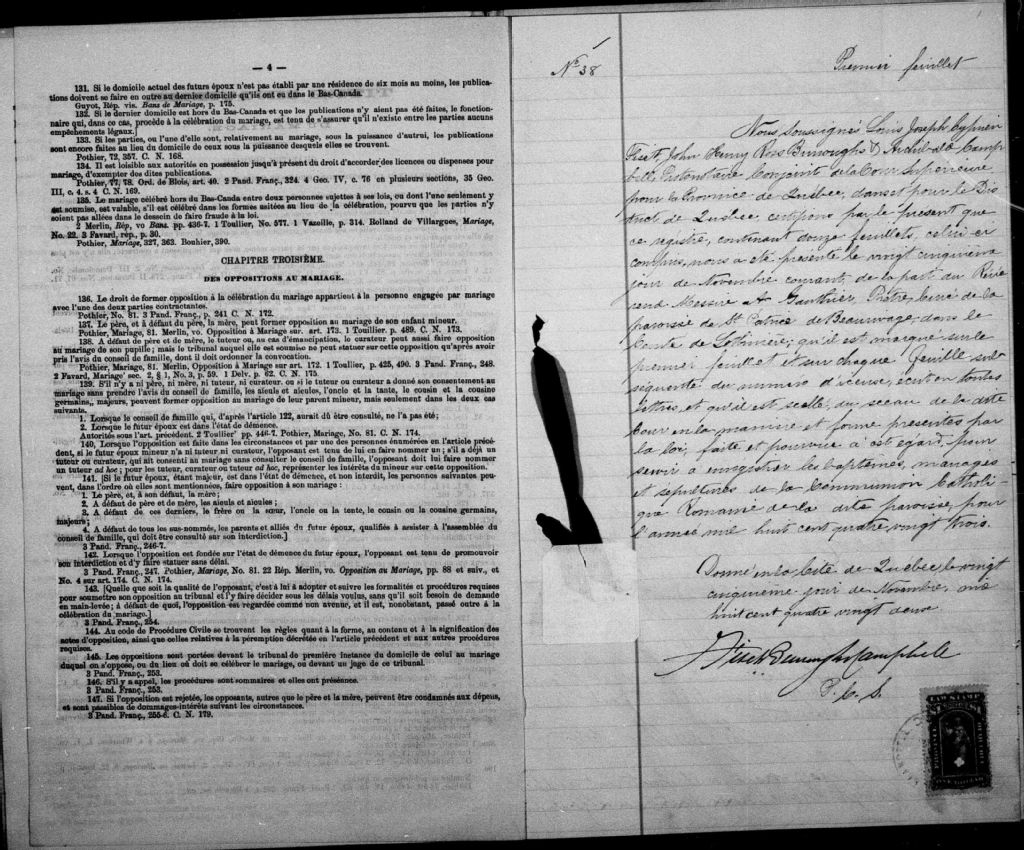 — 4 —
131. Si le domicile actuel des futurs époux n'est pas établi par une résidence de six mois au moins, les publica-
tions doivent se faire en outre au dernier domicile qu'ils ont eu dans le Bas-Canada.
Guyot, Rép. vis. Bans de Mariage, p. 175.
132. Si le dernier domicile est hors du Bas-Canada et que les publications n'y aient pas été faites, le fonction-
naire qui, dans ce cas, procède à la célébration du mariage, est tenu de s'assurer qu'il n'existe entre les parties aucuns
empêchements légaux.]
133. Si les parties, ou l'une d'elle sont, relativement au mariage, sous la puissance d'autrui, les publications
sont encore faites au lieu du domicile de ceux sous la puissance desquels elles se trouvent.
Pothier, 72, 357. C. N. 168.
134. Il est loisible aux autorités en possession jusqu'à présent du droit d'accorder des licences ou dispenses pour
mariage, d'exempter des dites publications.
Pothier, 77, 78. Ord. de Blois, art. 40. 2 Pand. Franç., 324. 4 Geo. IV, c. 76 en plusieurs sections, 35 Geo.
III, c. 4. s. 4 C. N. 169.
135. Le mariage célébré hors du Bas-Canada entre deux personnes sujettes à ses lois, ou dont l'une seulement y
est soumise, est valable, s'il est célébré dans les formes usitées au lieu de la célébration, pourvu que les parties n'y
soient pas allées dans le dessein de faire fraude à la loi.
2 Merlin, Rép, vo Bans. pp. 436-7. 1 Toullier, No. 577. 1 Vazeille, p. 314. Rolland de Villargues, Mariage,
No. 22. 3 Favard, rép., p. 30.
Pothier, Mariage, 327, 363. Bouhier, 390.
CHAPITRE TROISIÈME.
DES OPPOSITIONS AU MARIAGE.
136. Le droit de former opposition à la célébration du mariage appartient à la personne engagée par mariage
avec l'une des deux parties contractantes.
Pothier, No. 81. 3 Pand. Franç., p. 241 C. N. 172.
137. Le père, et à défaut du père, la mère, peut former opposition au mariage de son enfant mineur.
Pothier, Mariage, 81. Merlin, vo. Opposition à Mariage sur. art. 173. 1 Touillier. p. 489. C. N. 173.
138. A défaut de père et de mère, le tuteur ou, au cas d'émancipation, le curateur peut aussi faire opposition
au mariage de son pupille; mais le tribunal auquel elle est soumise ne peut statuer sur cette opposition qu'après avoir
pris l'avis du conseil de famille, dont il doit ordonner la convocation.
Pothier, Mariage, 81. Merlin, vo. Opposition à Mariage sur art. 172. 1 Toullier, p. 425, 490. 3 Pand. Franç., 248.
2 Favard, Mariage' sec. 2, § 1, No. 3, p. 59. 1 Delv. p. 62. C. N. 175.
139. S'il n'y a ni père, ni mère, ni tuteur, ni curateur, ou si le tuteur ou curateur a donné son consentement au
mariage sans prendre l'avis du conseil de famille, les aïeuls et aïeules, l'oncle et la tante, le cousin et la cousine
germains, majeurs, peuvent former opposition au mariage de leur parent mineur, mais seulement dans les deux cas
suivants.
1. Lorsque le conseil de famille qui, d'après l'article 122, aurait dû être consulté, ne l'a pas été;
2. Lorsque le futur époux est dans l'état de démence.
Autorités sous l'art. précédent. 2 Toullier' pp. 446-7. Pothier, Mariage, No. 81. C. N. 174.
140. Lorsque l'opposition est faite dans les circonstances et par une des personnes énumérées en l'article précé-
dent, si le futur époux mineur n'a ni tuteur ni curateur, l'opposant est tenu de lui en faire nommer un; s'il a déjà un
tuteur ou curateur, qui ait consenti au mariage sans consulter le conseil de famille, l'opposant doit lui faire nommer
un tuteur ad hoc; pour les tuteur, curateur ou tuteur ad hoc, représenter les intérêts du mineur sur cette opposition.
141. [Si le futur époux, étant majeur, est dans l'état de démence, et non interdit, les personnes suivantes peu-
vent, dans l'ordre où elles sont mentionnées, faire opposition à son mariage:
1. Le père, et, à son défaut, la mère;
2. A défaut de père et de mère, les aïeuls et aïeules;
3. A défaut de ces derniers, le frère ou la sœur, l'oncle ou la tante, le cousin ou la cousine germains,
majeurs;
4. A défaut de tous les sus-nommés, les parents et alliés du futur époux, qualifiés à assister à l'assemblée du
conseil de famille, qui doit être consulté sur son interdiction.]
3 Pand. Franç., 246-7.
142. Lorsque l'opposition est fondée sur l'état de démence du futur époux, l'opposant est tenu de promouvoir
son interdiction et d'y faire statuer sans délai.
3 Pand. Franç., 247. Pothier, Mariage, No. 81. 22 Rép. Merlin, vo. Opposition au Mariage, pp. 88 et suiv., et
No. 4 sur art. 174. C. N. 174.
143. [Quelle que soit la qualité de l'opposant, c'est à lui à adopter et suivre les formalités et procédures requises
pour soumettre son opposition au tribunal et l'y faire décider sous les délais voulus, sans qu'il soit besoin de demande
en main-levée; à défaut de quoi, l'opposition est regardée comme non avenue, et il est, nonobstant, passé outre à la
célébration du mariage.]
3 Pand. Franç., 254.
144. Au code de Procédure Civile se trouvent les règles quant à la forme, au contenu et à la signification des
actes d'opposition, ainsi que celles relatives à la péremption décrétée en l'article précédent et aux autres procédures
requises.
145. Les oppositions sont portées devant le tribunal de première instance du domicile de celui au mariage
duquel on s'oppose, ou du lieu où doit se célébrer le mariage, ou devant un juge de ce tribunal.
3 Pand. Franç., 253.
146. S'il y a appel, les procédures sont sommaires et elles ont préséance.
3 Pand. Franç., 253.
147. Si l'opposition est rejetée, les opposants, autres que le père et la mère, peuvent être condamnés aux dépens,
et sont passibles de dommages-intérêts suivant les circonstances.
3 Pand. Franç., 255-6. C. N. 179.
No 38
Premier feuillet
Nous, soussignés Louis Joseph Cyprien
Fiset, John Henry Ross Burroughs & Archibald Camp
bell, Protonotaire Conjoint de la Cour Supérieure
pour la Province de Québec, dans et pour le Dis
trict de Québec, certifions par le present que
ce registre, contenant douze feuillets, celui-ci
compris, nous a été presenté le vingt cinquième
jour de Novembre courant, de la part du Révé
rend Messire Gauthier, Prêtre, Curé de la
paroisse de St Patrice de Beaurivage, dans le
Comté de Lotbinière; qu'il est marqué sur le
premier feuillet et sur chaque feuille sub
séquente du numéro d'icelui, écrit en toutes
lettres, et qu'il est scellé du sceau de la dite
Cour en la manière et forme presentes par
la loi, faite et pourvue à cet égard, pour
servir à enregistrer les baptêmes, mariages
et sépultures de la Communion Catholi-
que Romaine de la dite paroisse, pour
l'année mil huit cent quatre vingt trois.
Donné en la Cité de Québec, le vingt
cinquième jour de Novembre, mil
huit cent quatre vingt deux
Fiset Burroughs Campbell
P. C. S.
LAW STAMP